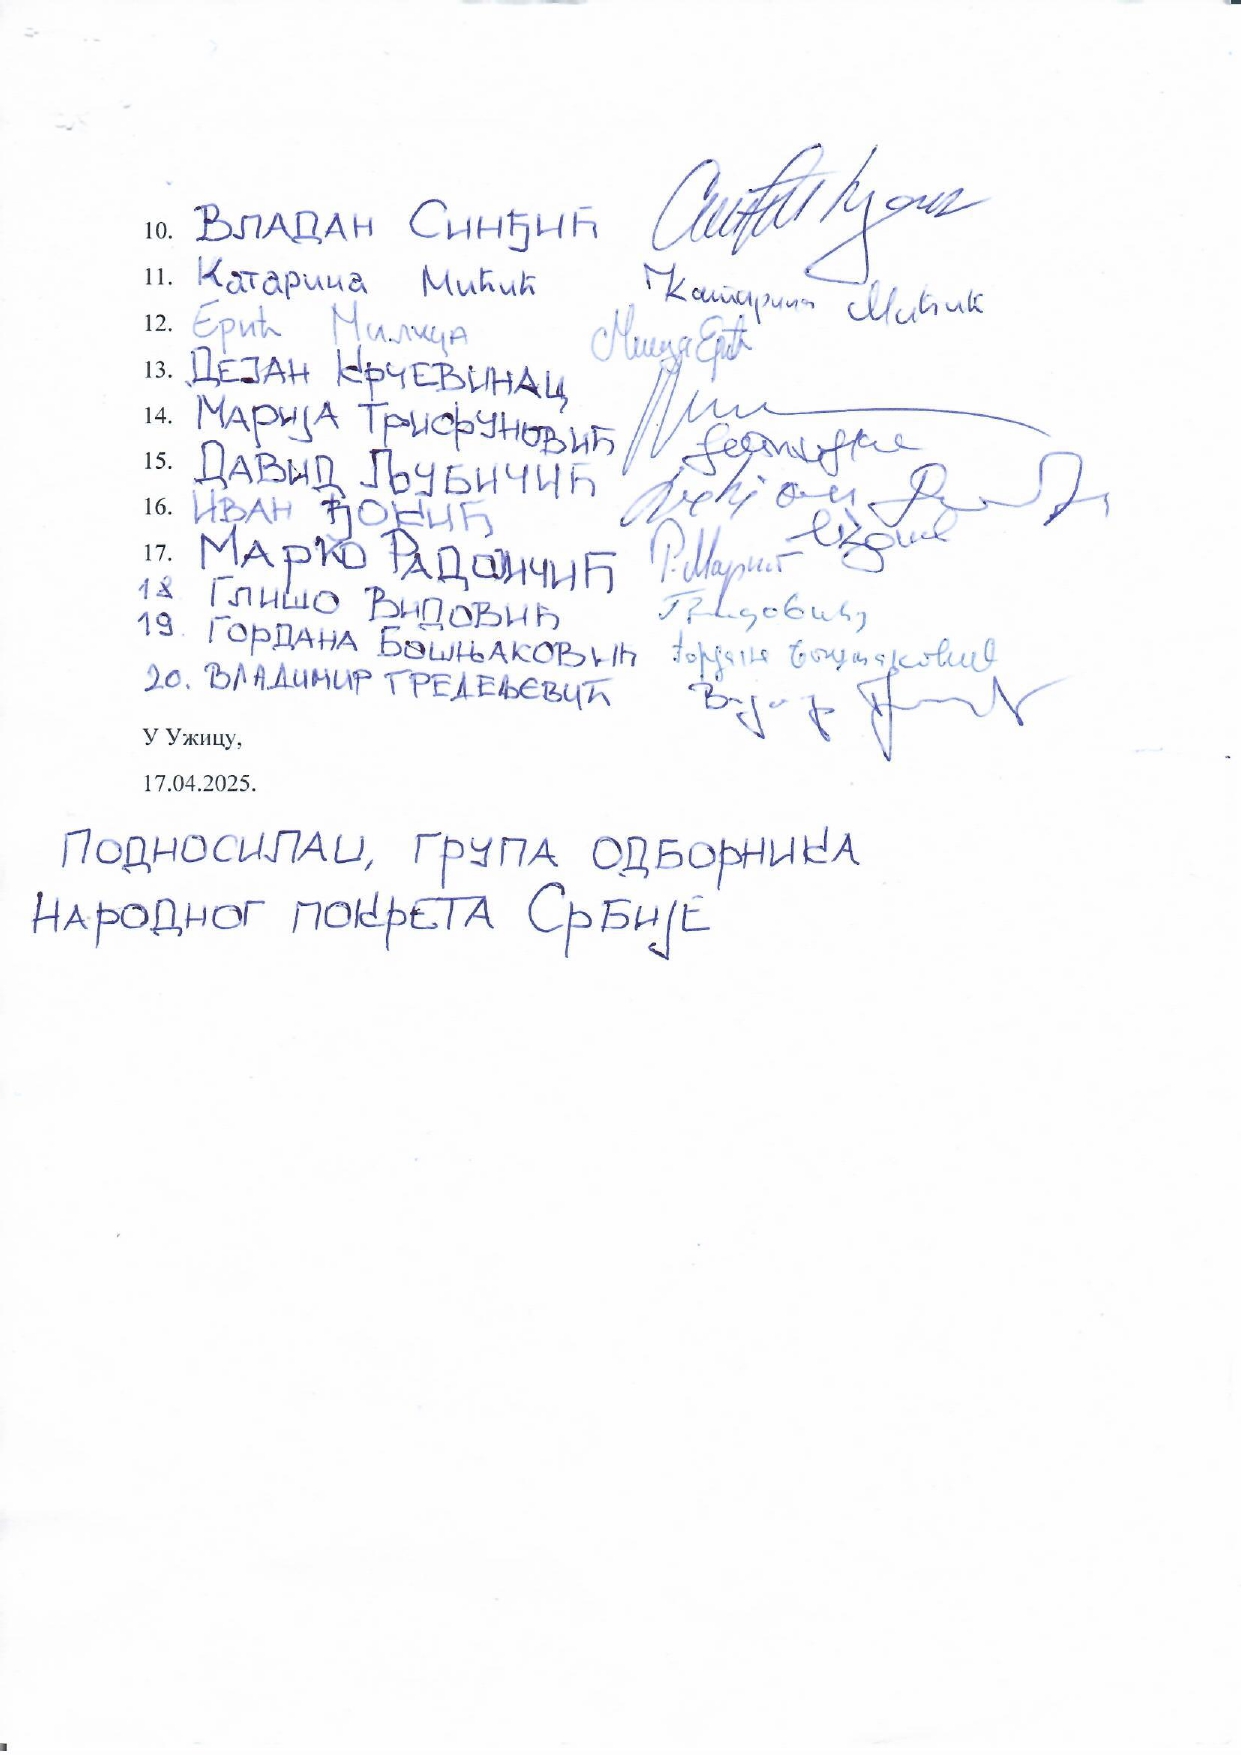 10. ВЛАДАН СИНЂИЋ
11. Катарина Мићић Катарина Мићић
12. Ерић Милица Милица Ерић
13. ДЕЈАН КРЧЕВИНАЦ
14. МАРИЈА ТРИФУНОВИЋ
15. ДАВИД ЉУБИЧИЋ
16. ИВАН ЂОКИЋ
17. МАРКО РАДОЈИЧИЋ
18 ГЛИШО ВИДОВИЋ
19. ГОРДАНА БОШЊАКОВИЋ Гордана Бошњаковић
20. ВЛАДИМИР ГРЕДЕЉЕВИЋ
У Ужицу,
17.04.2025.
ПОДНОСИЛАЦ, ГРУПА ОДБОРНИКА
НАРОДНОГ ПОКРЕТА СРБИЈЕ